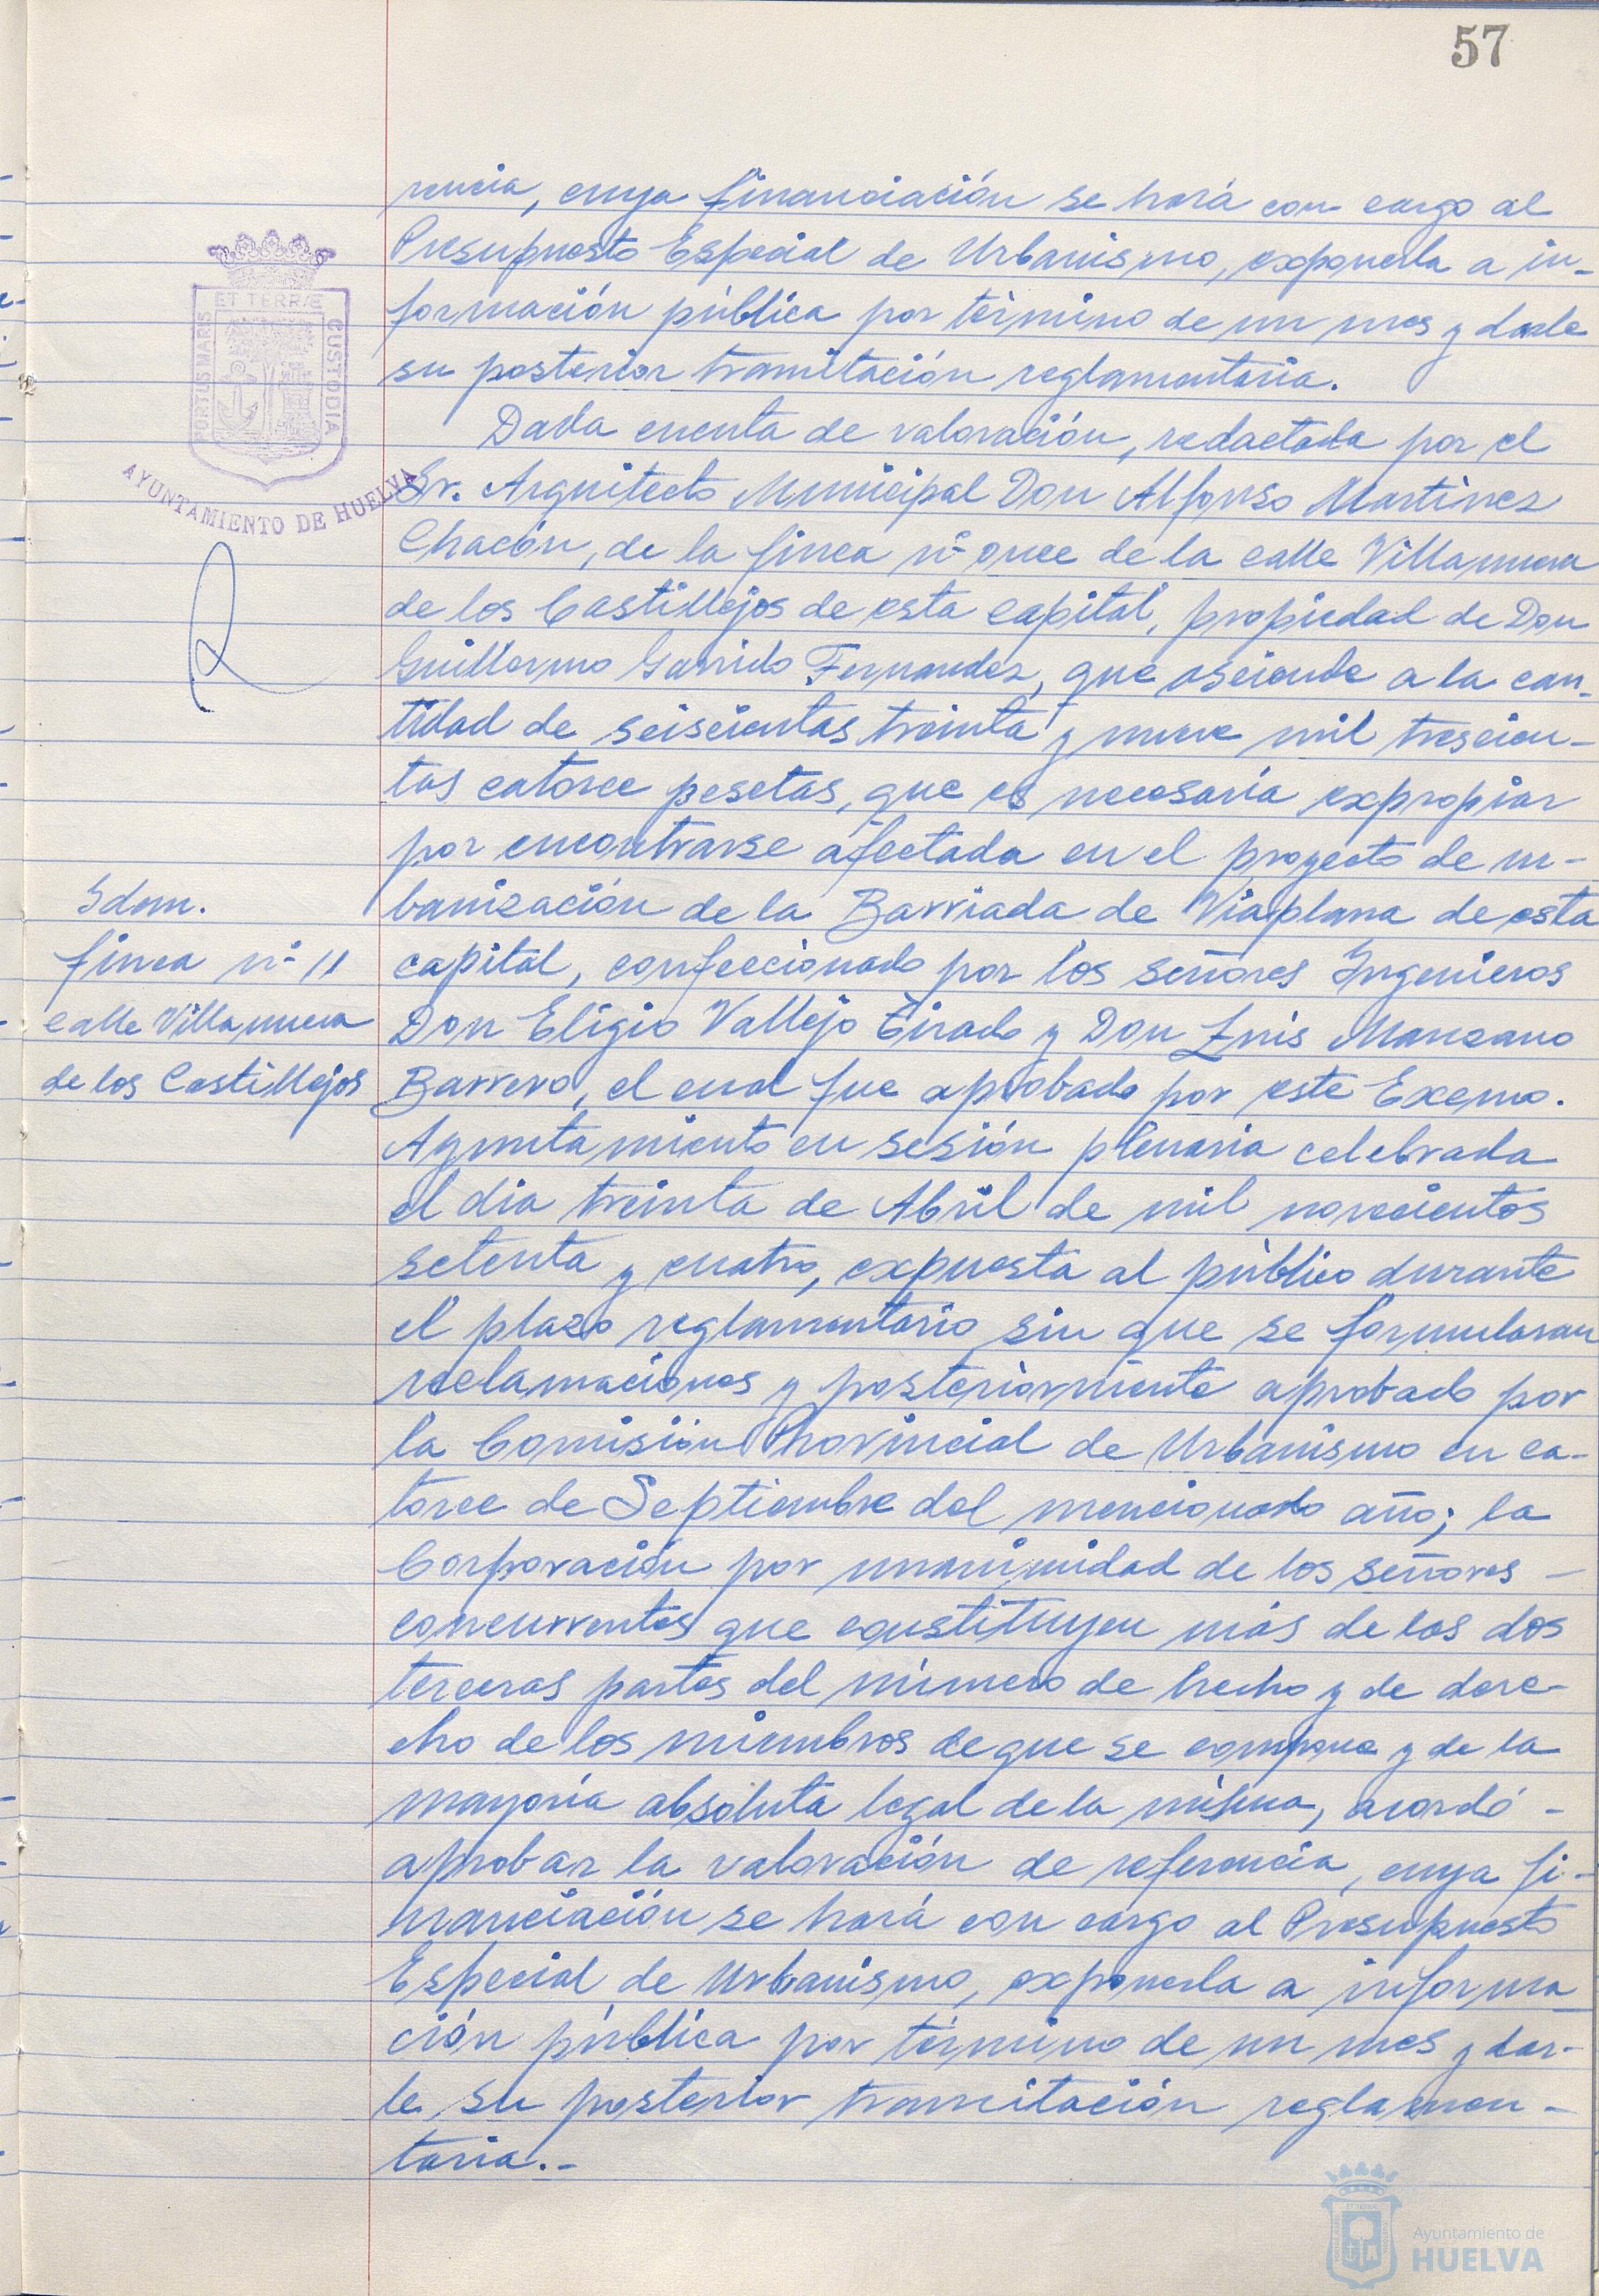 57
rencia, cuya financiación se hará con cargo al
Presupuesto Especial de Urbanismo, exponerla a in-
formación pública por término de un mes y darle
su posterior tramitación reglamentaria.
Dada cuenta de valoración, redactada por el
Sr. Arquitecto Municipal Don Alfonso Martinez
Chacón, de la finca nº once de la calle Villanueva
de los Castillejos de esta capital, propiedad de Don
Guillermo Garrido Fernandez, que asciende a la can-
tidad de seiscientas treinta y nueve mil trescien-
tas catorce pesetas, que es necesaria expropiar
por encontrarse afectada en el proyecto de ur-
banización de la Barriada de Viaplana de esta
capital, confeccionado por los señores Ingenieros
Don Eligio Vallejo Tirado y Don Luis Manzano
Barrero, el cual fue aprobado por este Excmo.
Ayuntamiento en sesión plenaria celebrada
el dia treinta de Abril de mil novecientos
setenta y cuatro, expuesta al público durante
el plazo reglamentario sin que se formularan
reclamaciones y posteriormente aprobado por
la Comisión Provincial de Urbanismo en ca-
torce de Septiembre del mencionado año; la
Corporación por unanimidad de los señores -
concurrentes que constituyen más de las dos
terceras partes del número de hecho y de dere-
cho de los miembros de que se compone y de la
mayoría absoluta legal de la misma, acordó -
aprobar la valoración de referencia, cuya fi-
nanciación se hará con cargo al Presupuesto
Especial de Urbanismo, exponerla a informa
ción pública por término de un mes y dar-
le su posterior tramitación reglamen-
taria.-
Idem.
finca nº 11
calle Villanueva
de los Castillejos
PORTUS MARIS
ET TERRÆ
CUSTODIA
AYUNTAMIENTO DE HUELVA
Ayuntamiento de
HUELVA